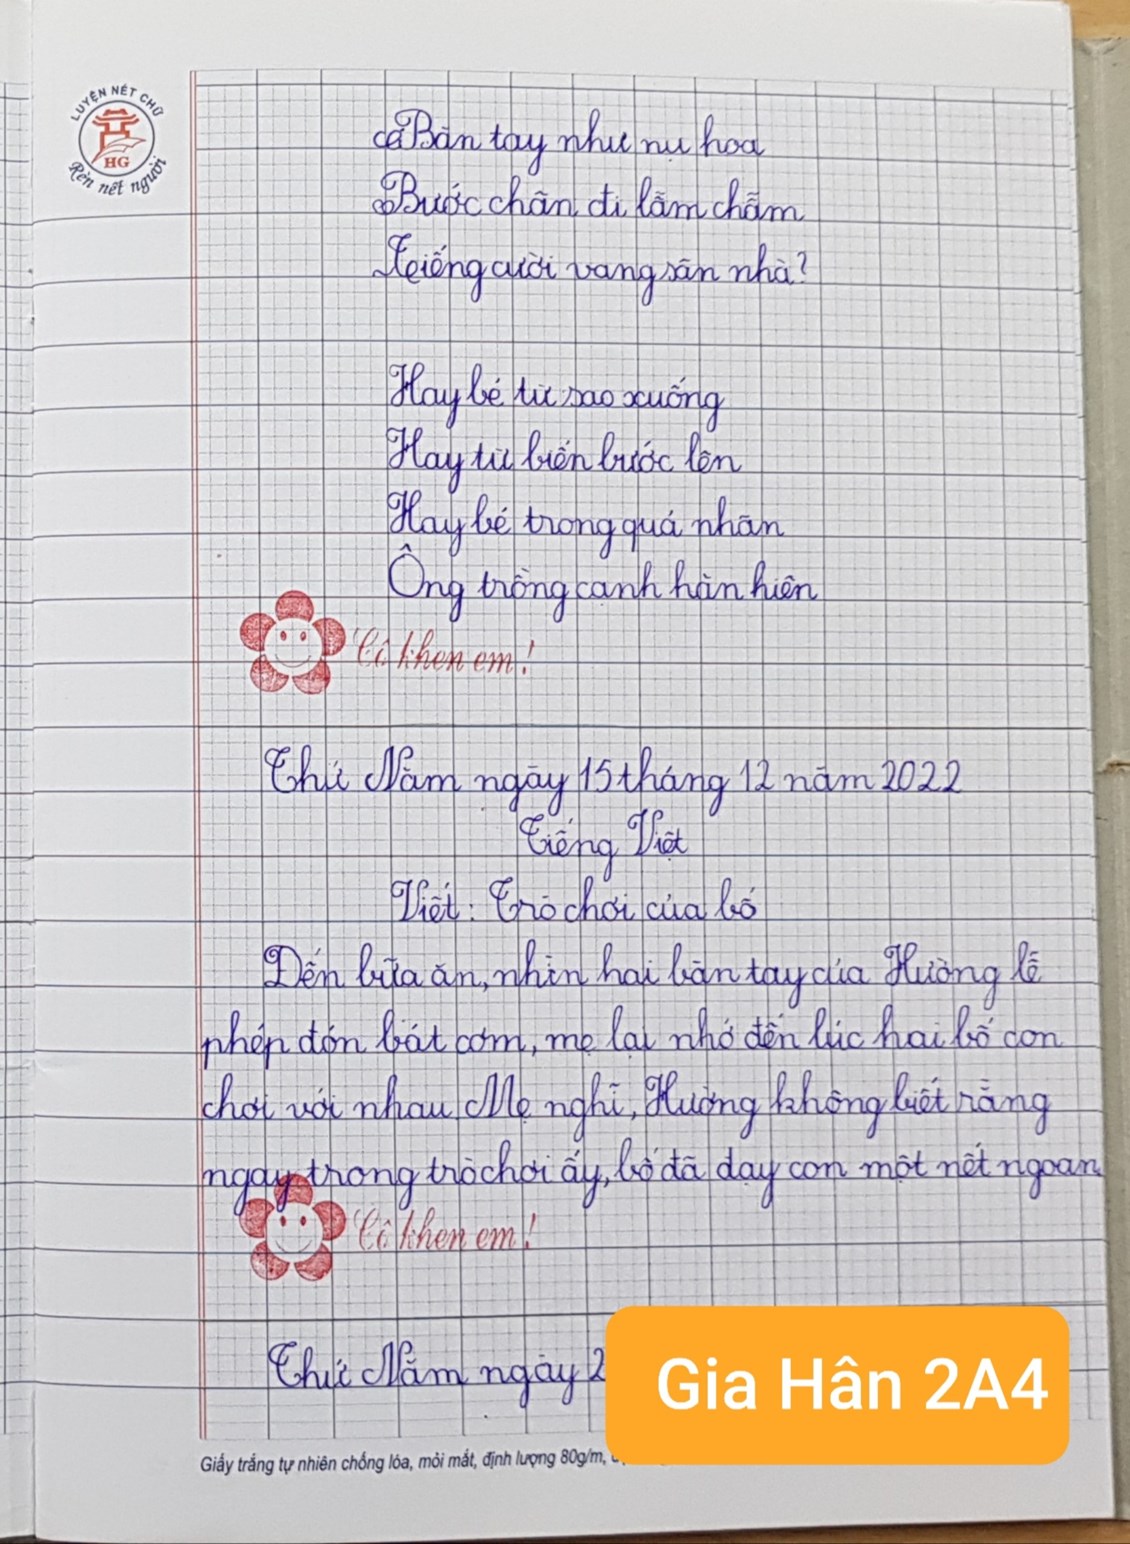 LUYỆN NÉT CHỮ
HG
Rèn nết người
Bàn tay như nụ hoa
Bước chân đi lẫm chẫm
Tiếng cười vang sân nhà?
Hay bé từ sao xuống
Hay từ biển bước lên
Hay bé trong quả nhãn
Ông trồng cạnh hàn hiên
Cô khen em!
Thứ Năm ngày 15 tháng 12 năm 2022
Tiếng Việt
Viết: Trò chơi của bố
Đến bữa ăn, nhìn hai bàn tay của Hường lễ
phép đón bát cơm, mẹ lại nhớ đến lúc hai bố con
chơi với nhau. Mẹ nghĩ, Hường không biết rằng
ngay trong trò chơi ấy, bố đã dạy con một nết ngoan
Cô khen em!
Thứ Năm ngày 2
Gia Hân 2A4
Giấy trắng tự nhiên chống lóa, mỏi mắt, định lượng 80g/m,